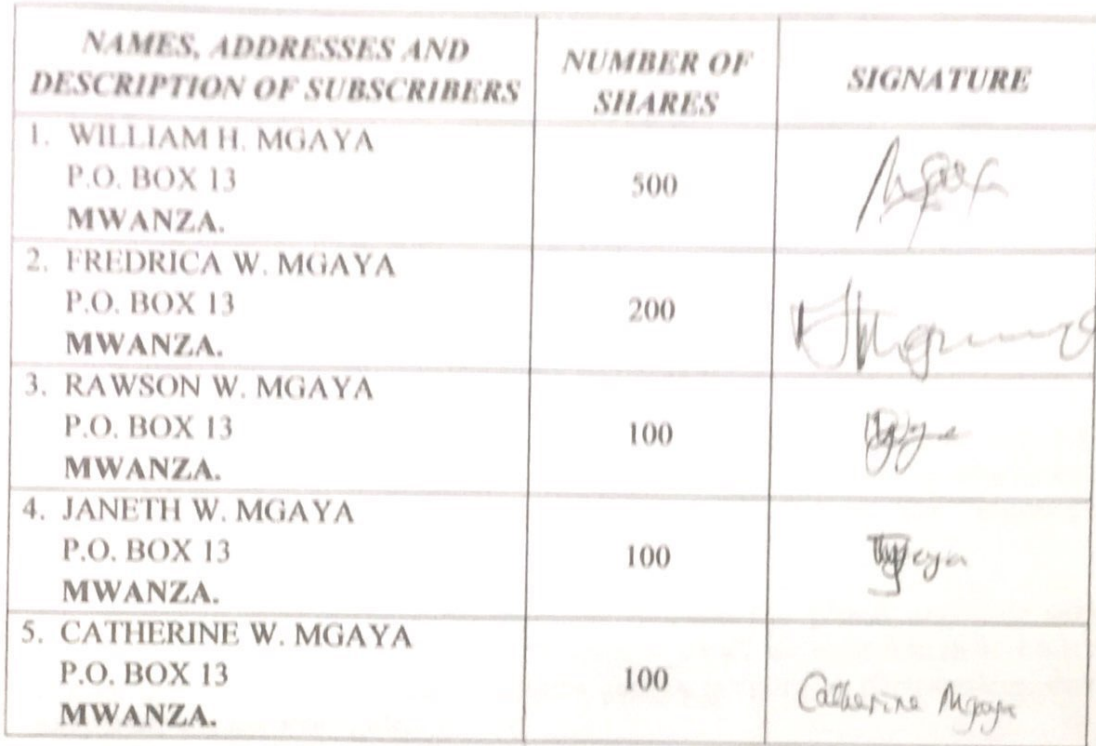 NAMES, ADDRESSES AND
DESCRIPTION OF SUBSCRIBERS
NUMBER OF
SHARES
SIGNATURE
1. WILLIAM H. MGAYA
P.O. BOX 13
MWANZA.
500
2. FREDRICA W. MGAYA
P.O. BOX 13
MWANZA.
200
3. RAWSON W. MGAYA
P.O. BOX 13
MWANZA.
100
4. JANETH W. MGAYA
P.O. BOX 13
MWANZA.
100
5. CATHERINE W. MGAYA
P.O. BOX 13
MWANZA.
100
Catherine Mgaya